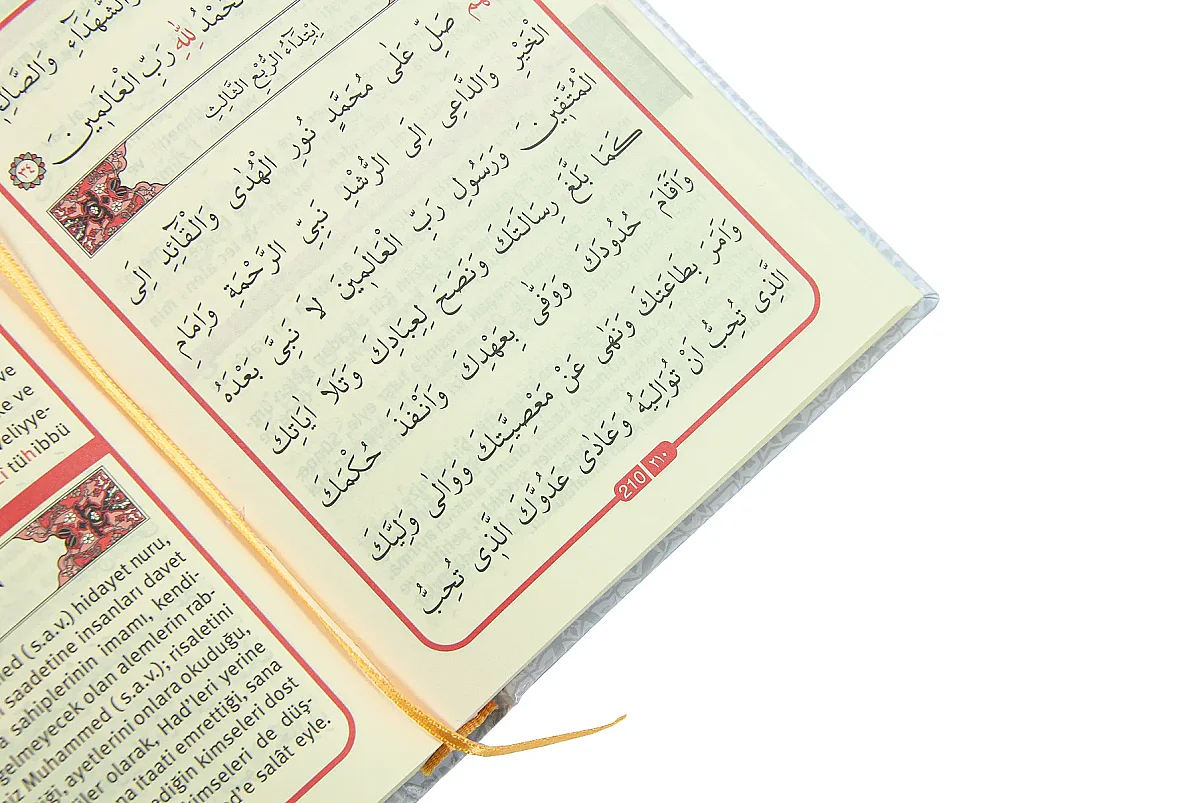 وَالشُّهَدَاءِ وَالصَّالِ
لِلّٰهِ رَبِّ الْعَالَمِينَ
٣٤
اِبْتِدَاءُ الرُّبْعِ الثَّالِثِ
صَلِّ عَلٰى مُحَمَّدٍ نُورِ الْهُدٰى وَالْقَٓائِدِ اِلَى
الْخَيْرِ وَالدَّاعِى اِلَى الرُّشْدِ نَبِىِّ الرَّحْمَةِ وَاِمَامِ
الْمُتَّقِينَ وَرَسُولِ رَبِّ الْعَالَمِينَ لَا نَبِىَّ بَعْدَهُ
كَمَا بَلَّغَ رِسَالَتَكَ وَنَصَحَ لِعِبَادِكَ وَتَلَا اٰيَاتِكَ
وَاَقَامَ حُدُودَكَ وَوَفّٰى بِعَهْدِكَ وَاَنْفَذَ حُكْمَكَ
وَاَمَرَ بِطَاعَتِكَ وَنَهٰى عَنْ مَعْصِيَتِكَ وَوَالٰى وَلِيَّكَ
الَّذِى تُحِبُّ اَنْ تُوَالِيَهُ وَعَادٰى عَدُوَّكَ الَّذِى تُحِبُّ
210 ٢١٠
ve
ke ve
veliyye-
tühibbü
(s.a.v.) hidayet nuru,
saadetine insanları davet
sahiplerinin imamı, kendi-
gelmeyecek olan alemlerin rab-
Muhammed (s.a.v.); risaletini
ayetlerini onlara okuduğu,
olarak, Had'leri yerine
itaati emrettiği, sana
kimseleri dost
kimseleri de düş-
salât eyle.